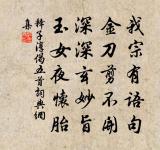 我宗有語句
金刀剪不開
深深玄妙旨
玉女夜懷胎
釋子淳偈五首詞典網
集